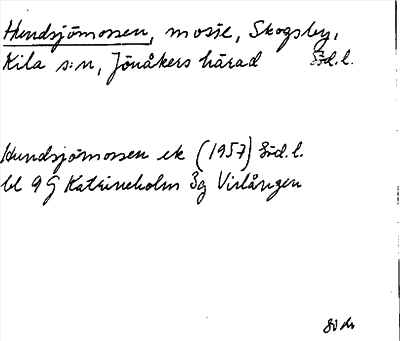 Hundsjömossen, mosse, Skogsby,
Kila s:n, Jönåkers härad Söd.l.
Hundsjömossen ek (1957) Söd.l.
bl 9G Katrineholm 3g Virlången